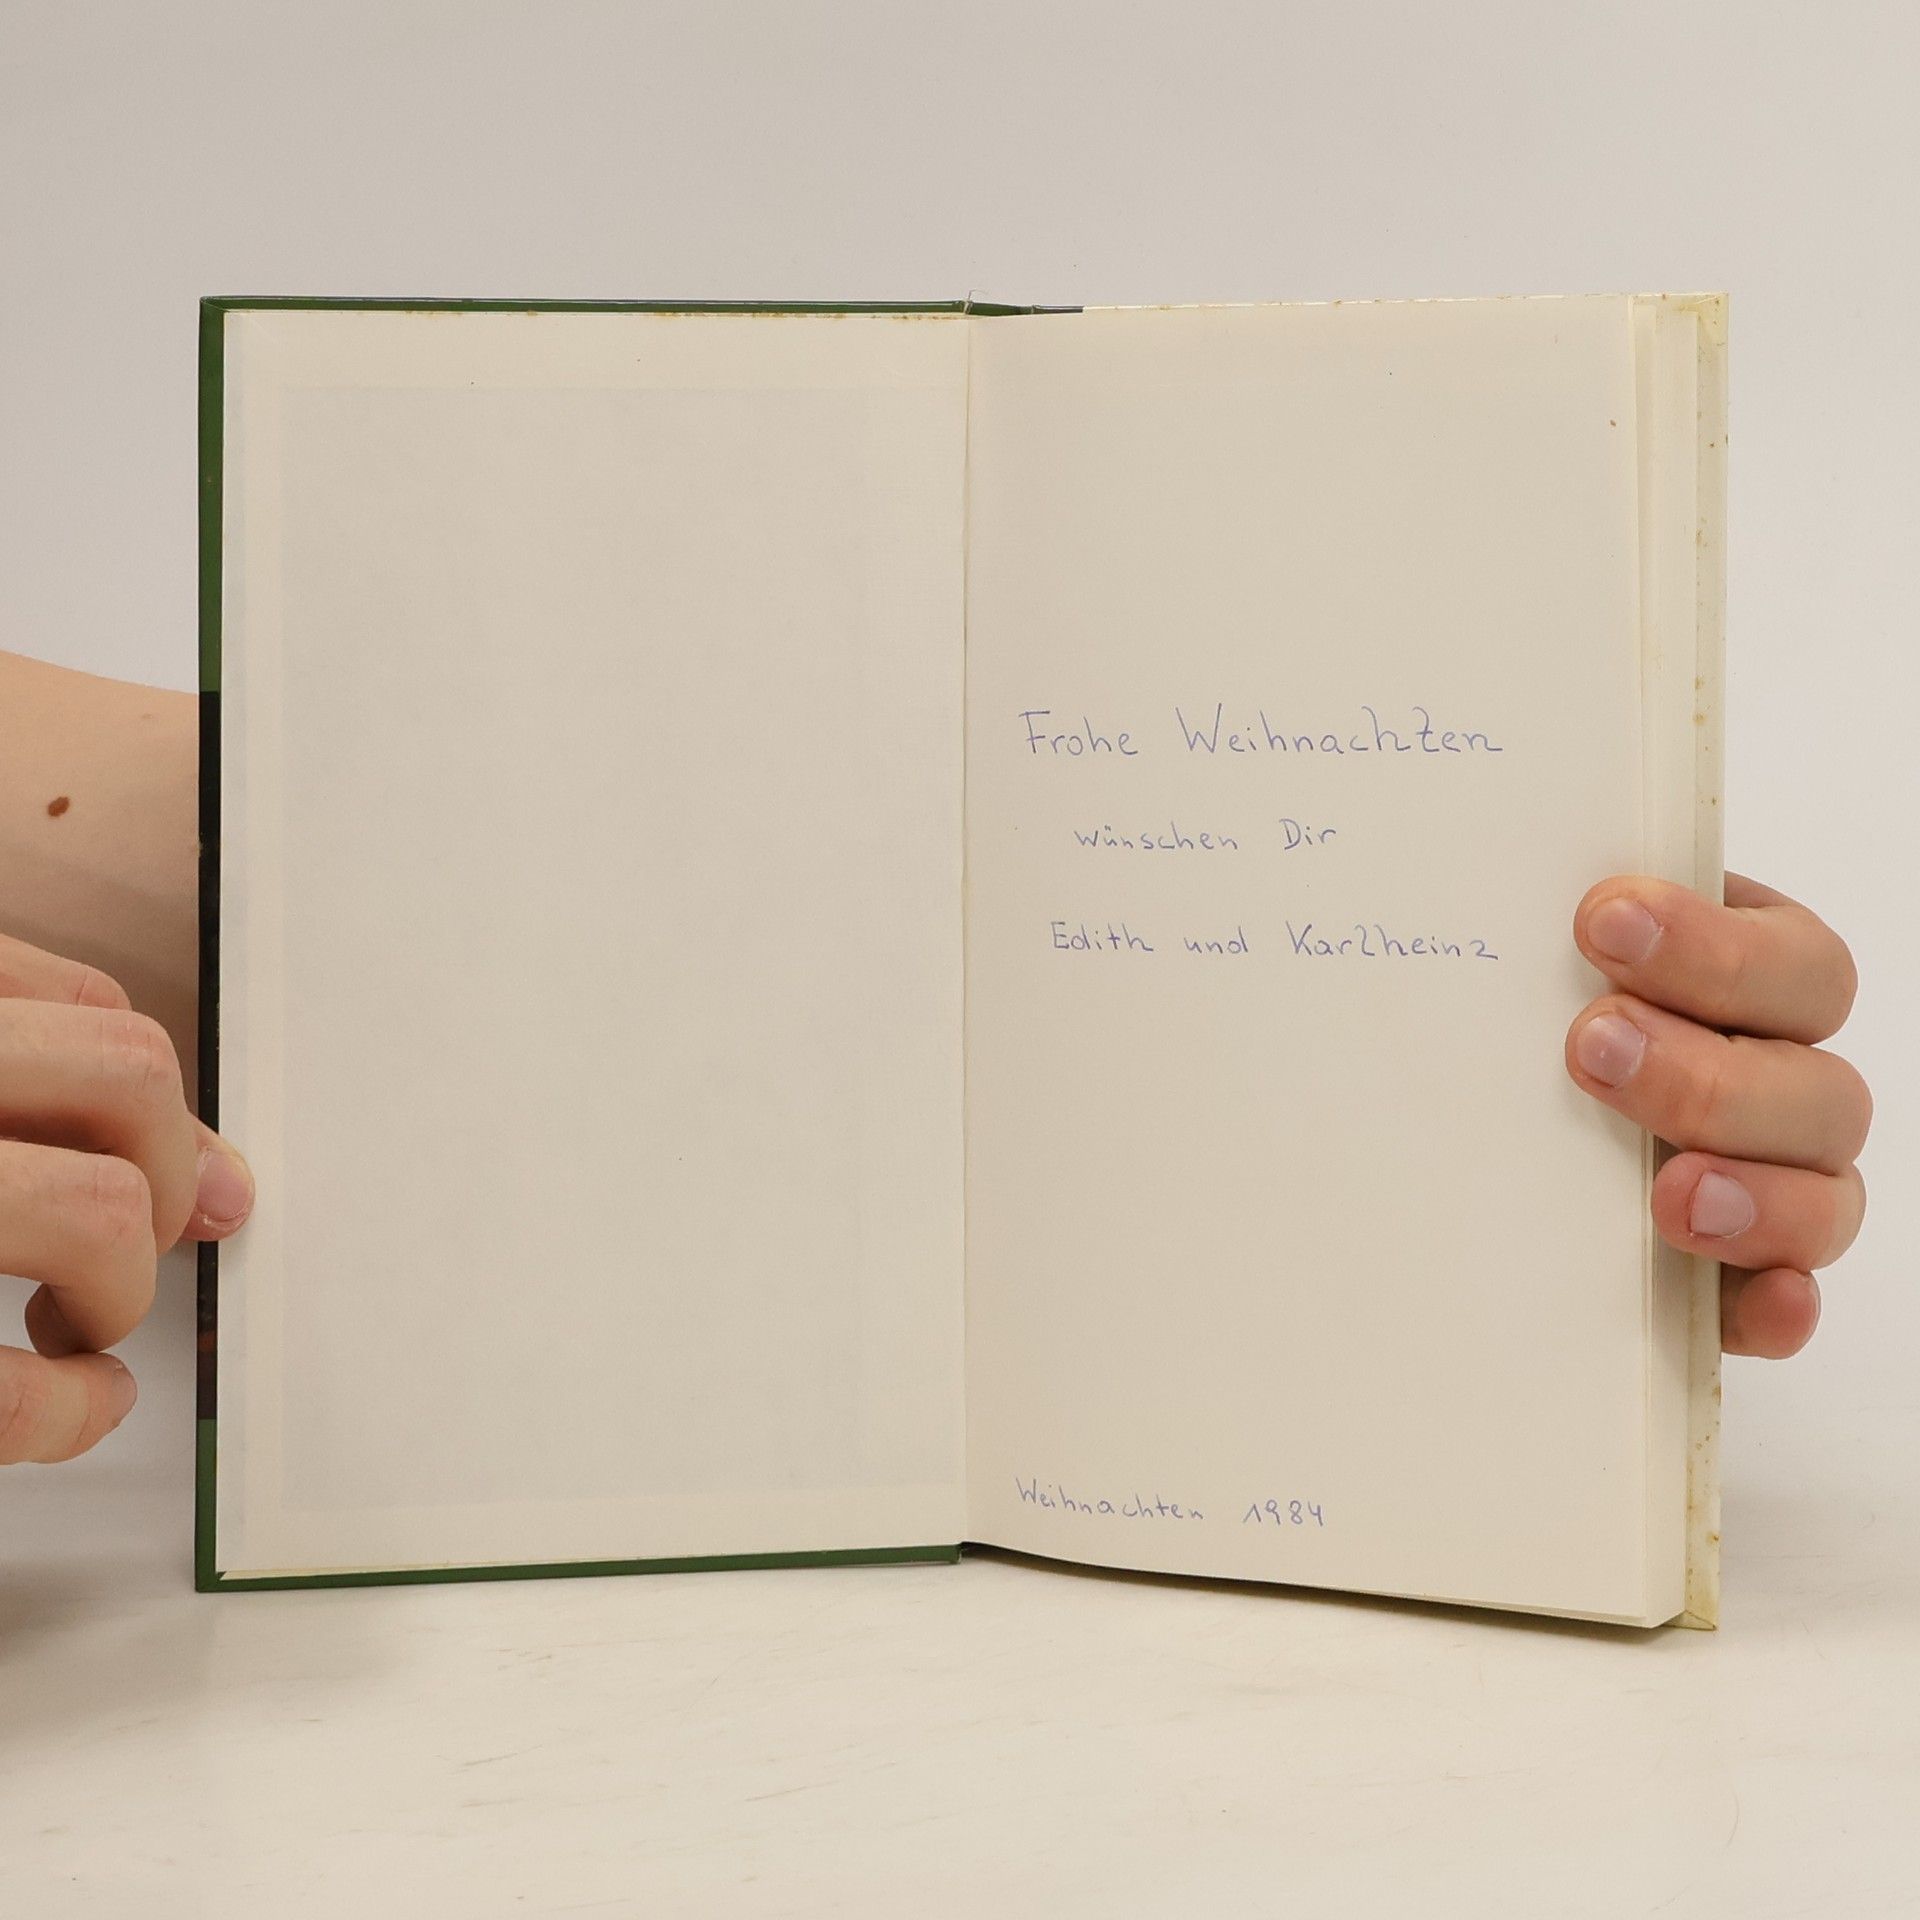 Frohe Weihnachten
wünschen Dir
Edith und Karlheinz
Weihnachten 1984